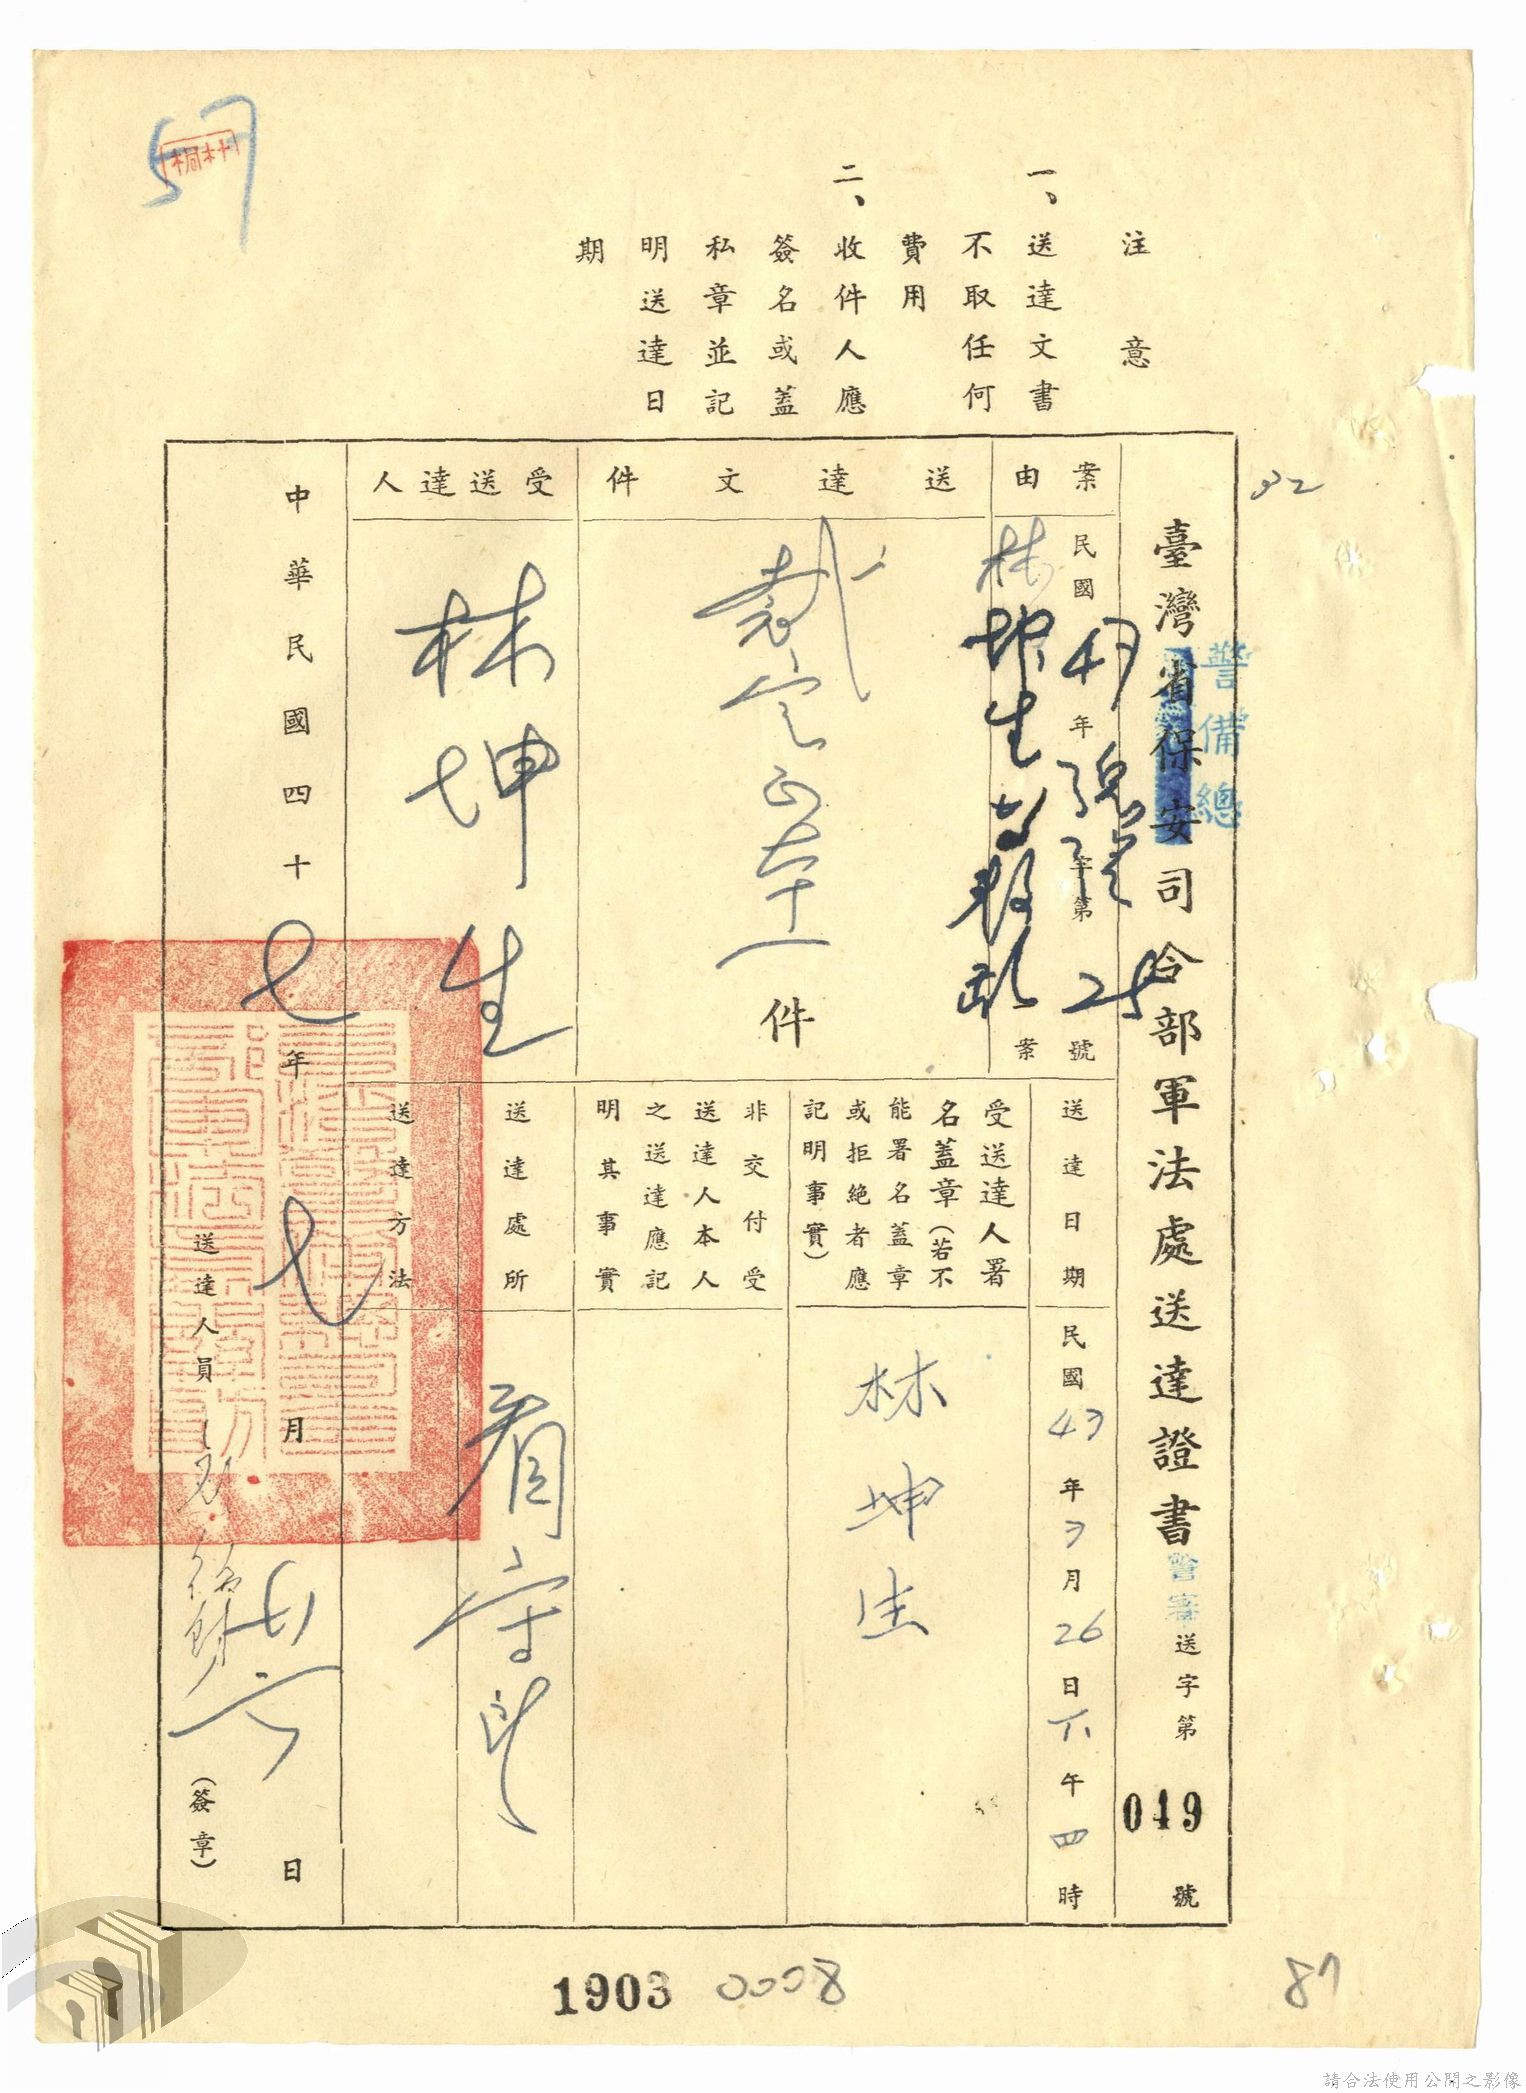 57
林桐
注意
一、送達文書
不取任何
費用
二、收件人應
簽名或蓋
私章並記
明送達日
期
32
臺灣省保安司令部軍法處送達證書
警備總
警審送字第019號
案由
民國 年 字第25號
林坤生 叛亂案
送達文件
裁定正本一件
受送達人
林坤生
送達日期
民國43年3月26日下午四時
受送達人署
名蓋章(若不
能署名蓋章
或拒絕者應
記明事實)
林坤生
非交付受
送達人本人
之送達應記
明其事實
送達處所
看守所
送達方法
中華民國四十七年七月 日
送達人員
(簽章)
1903
0008
87
請合法使用公開之影像